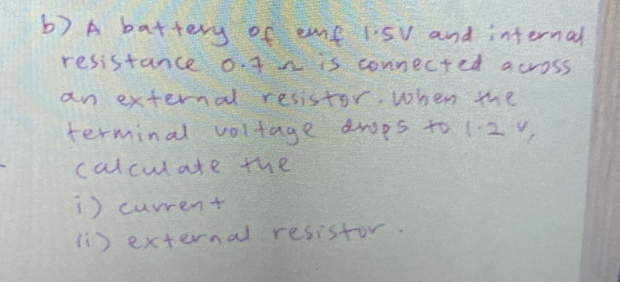 b) A battery of emf 1.5V and internal
resistance 0.7 Ω is connected across
an external resistor. When the
terminal voltage drops to 1.2 V,
calculate the
i) current
ii) external resistor.